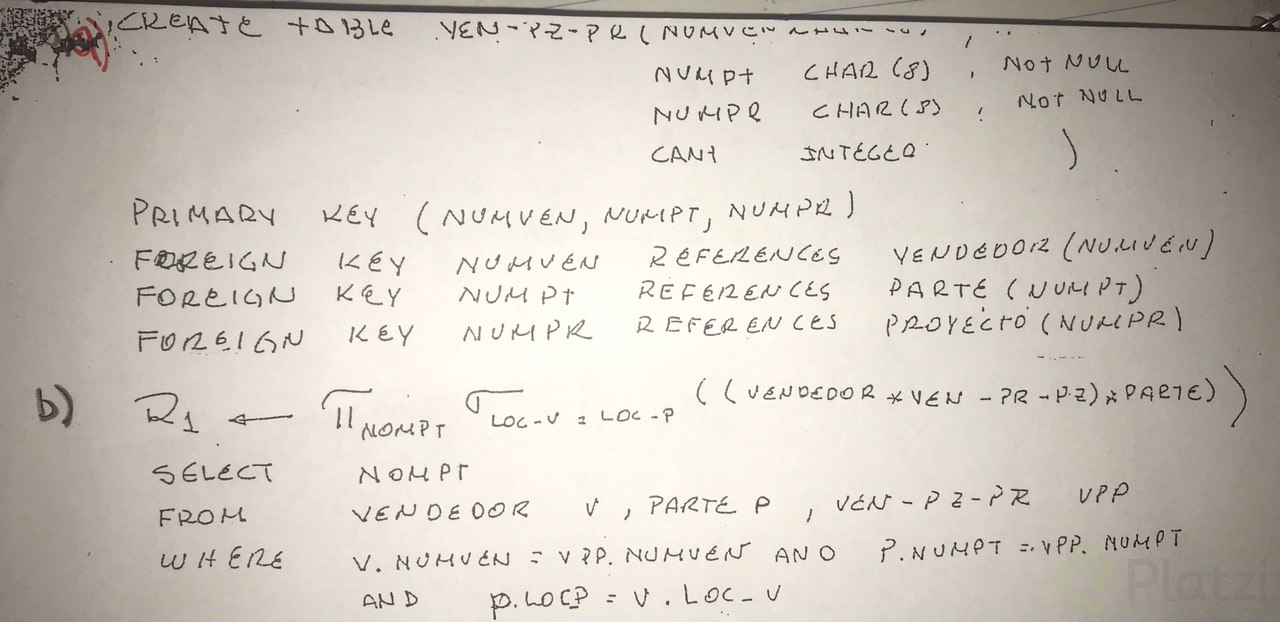 a) CREATE TABLE VEN-PZ-PR ( NUMVEN
NUMPT CHAR (8) , NOT NULL
NUMPR CHAR(8) , NOT NULL
CANT INTEGER )
PRIMARY KEY ( NUMVEN, NUMPT, NUMPR )
FOREIGN KEY NUMVEN REFERENCES VENDEDOR (NUMVEN)
FOREIGN KEY NUMPT REFERENCES PARTE ( NUMPT )
FOREIGN KEY NUMPR REFERENCES PROYECTO ( NUMPR )
b) R1 ← π NOMPT σ LOC-V = LOC-P ( ( VENDEDOR * VEN - PR - PZ) * PARTE ) )
SELECT NOMPT
FROM VENDEDOR V , PARTE P , VEN-PZ-PR VPP
WHERE V. NUMVEN = VPP. NUMVEN AND P.NUMPT = VPP. NUMPT
AND P.LOCP = V . LOC_V
Platzi